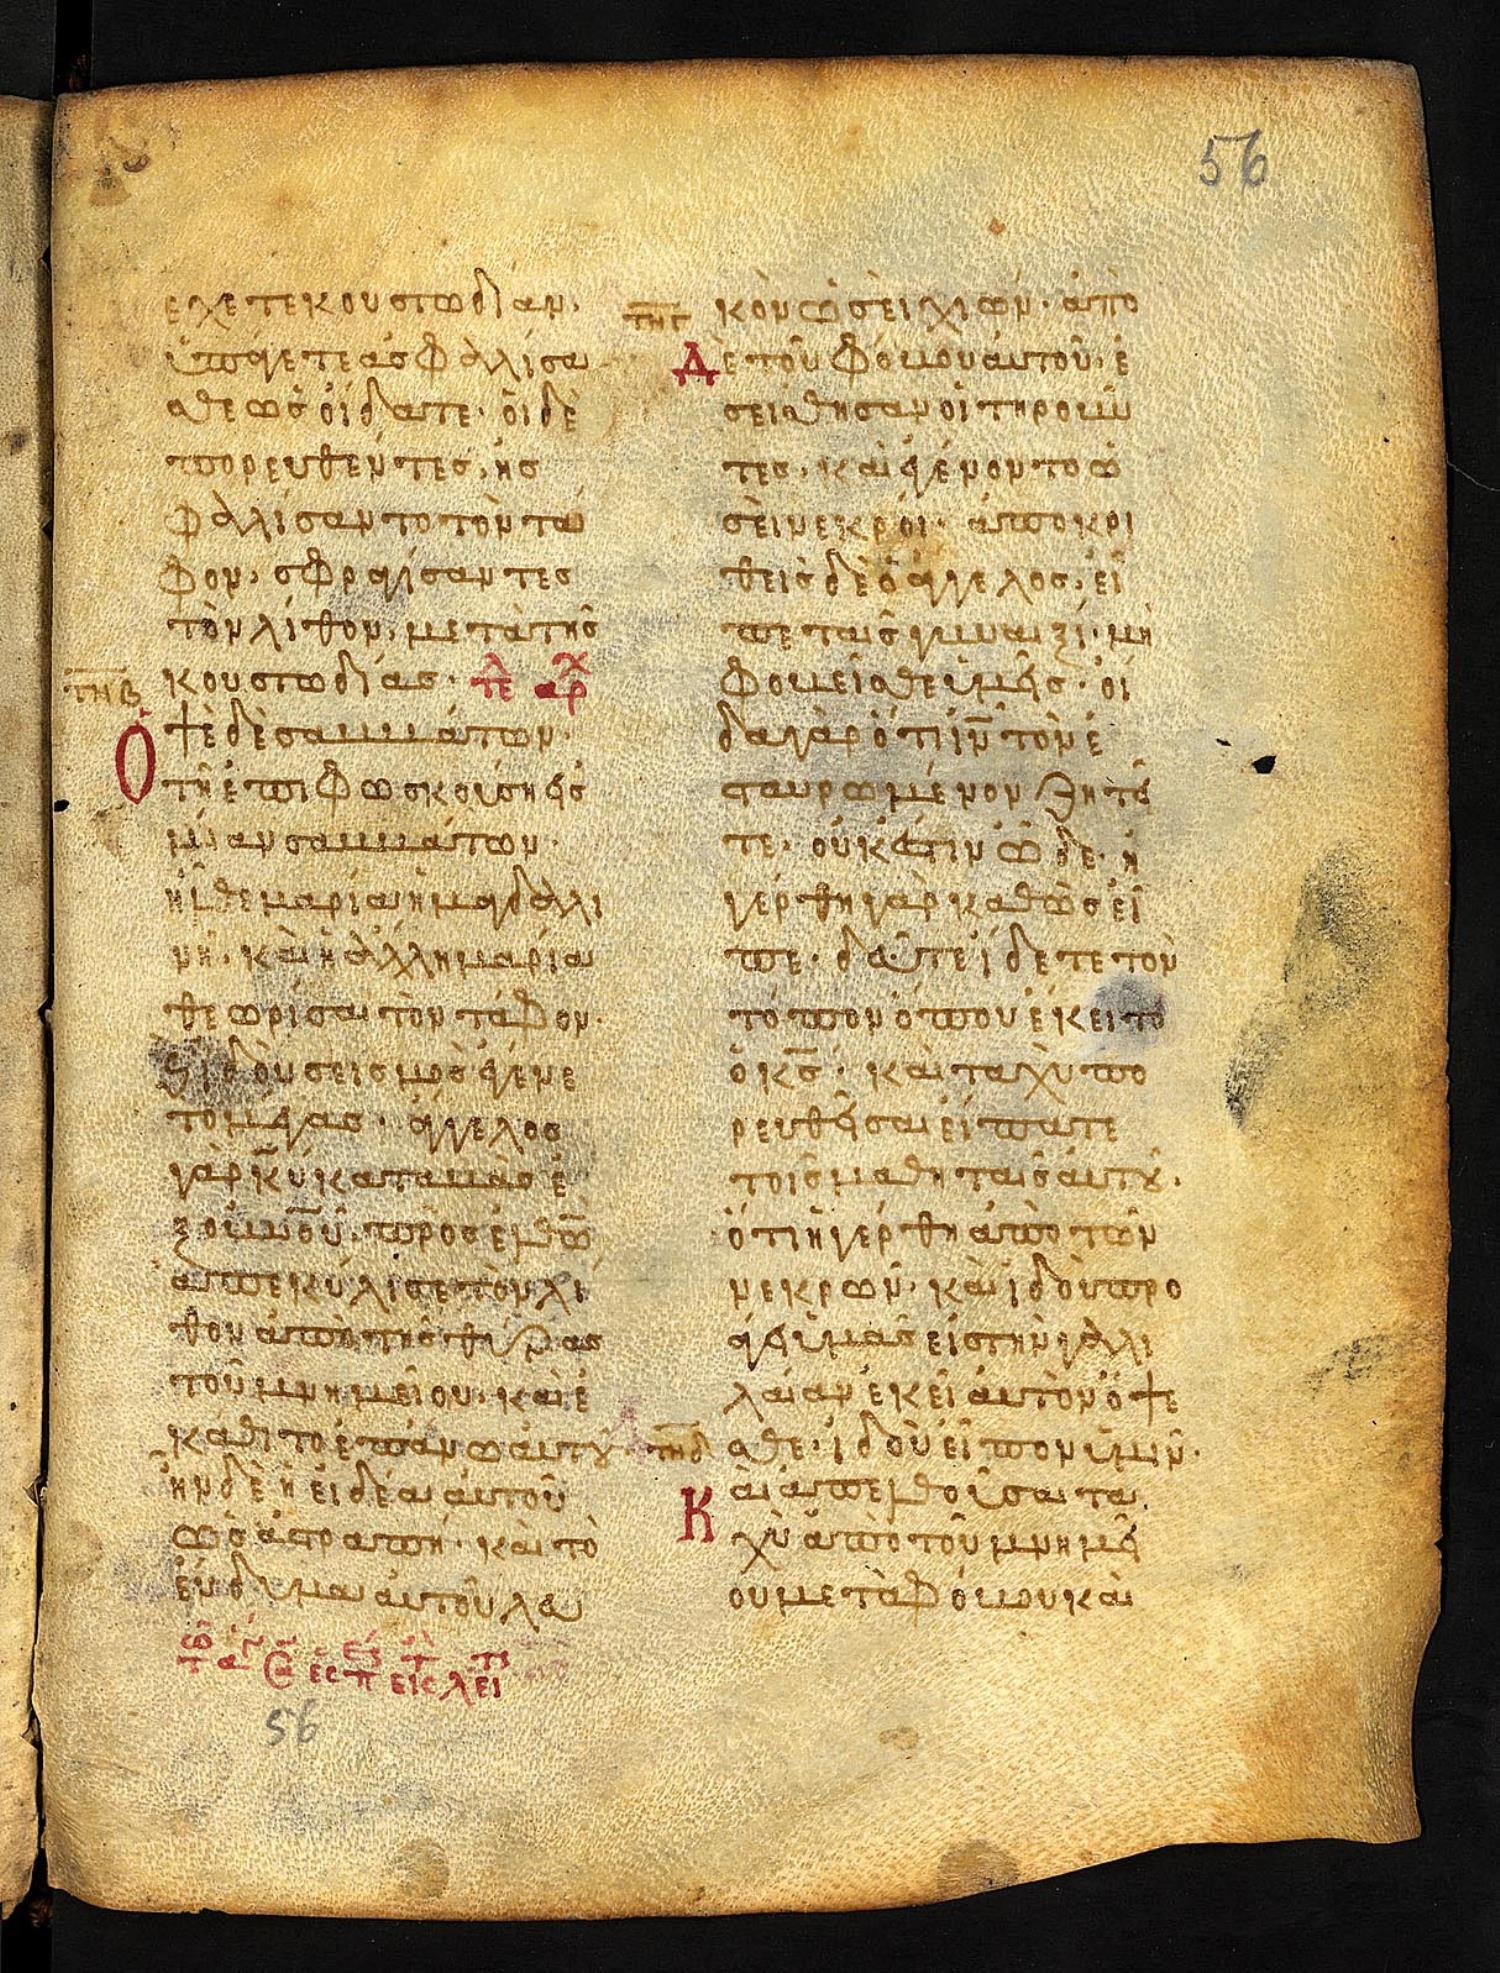 56
εχετε κουστωδίαν·
ὑπάγετε ἀσφαλίσα
σθε ὡς οἴδατε· οἱ δὲ
πορευθέντες, ἠσ
φαλίσαντο τὸν τά
φον, σφραγίσαντες
τὸν λίθον, μετὰ τῆς
τπβ κουστωδίας· τελ αρχ
Ὀψὲ δὲ σαββάτων·
τῆ ἐπιφωσκούση εἰς
μίαν σαββάτων·
ἦλθε μαρία ἡ μαγδαλι
νὴ· καὶ ἡ ἄλλη μαρία
θεωρίσαι τὸν τάφον·
καὶ ἰδοὺ σεισμὸς ἐγένε
το μέγας· ἄγγελος
γὰρ κ̅υ̅ καταβὰς ἐ
ξ οὐ̅νο̅ῦ· προσελθὼ̅
ἀπεκύλισε τὸν λί
θον ἀπὸ τῆς θύρας
τοῦ μνημείου· καὶ ἐ
κάθιτο ἐπάνω αὐτȣ·
ἦν δὲ ἡ εἰδέα αὐτοῦ
ὡς ἀστραπὴ· καὶ τὸ
ἔνδυμα αὐτοῦ λευ
56
τπγ κὸν ὡσεὶ χιών· ἀπὸ
Δὲ τοῦ φόβου αὐτοῦ· ἐ
σείσθησαν οἱ τηροῦν
τες· καὶ ἐγένοντο ὡ
σεὶ νεκροί· ἀποκρι
θεὶς δὲ ὁ ἄγγελος, εἶ
πε ταῖς γυναιξί· μὴ
φοβεῖσθε ὑμεῖς· οἶ
δα γὰρ ὅτι ἰ̅ν̅ τὸν ἐ
σταυρωμένον ζητεῖ
τε· οὐκ ἔστιν ὧδε· ἠ
γέρθη γὰρ καθὼς εἶ
πε· δεῦτε ἴδετε τὸν
τόπον ὅπου ἔκειτο
ὁ κ̅ς̅· καὶ ταχὺ πο
ρευθεῖσαι εἴπατε
τοῖς μαθηταῖς αὐτȣ·
ὅτι ἠγέρθη ἀπὸ τῶν
νεκρῶν· καὶ ἰδοὺ προ
άγει ὑμᾶς εἰς τὴν γαλι
λαίαν ἐκεῖ αὐτὸν ὄψε
τπδ σθε· ἰδοὺ εἶπον ὑμῖν·
Καὶ ἀπελθοῦσαι τα
χὺ ἀπὸ τοῦ μνημεί
ου μετὰ φόβου καὶ